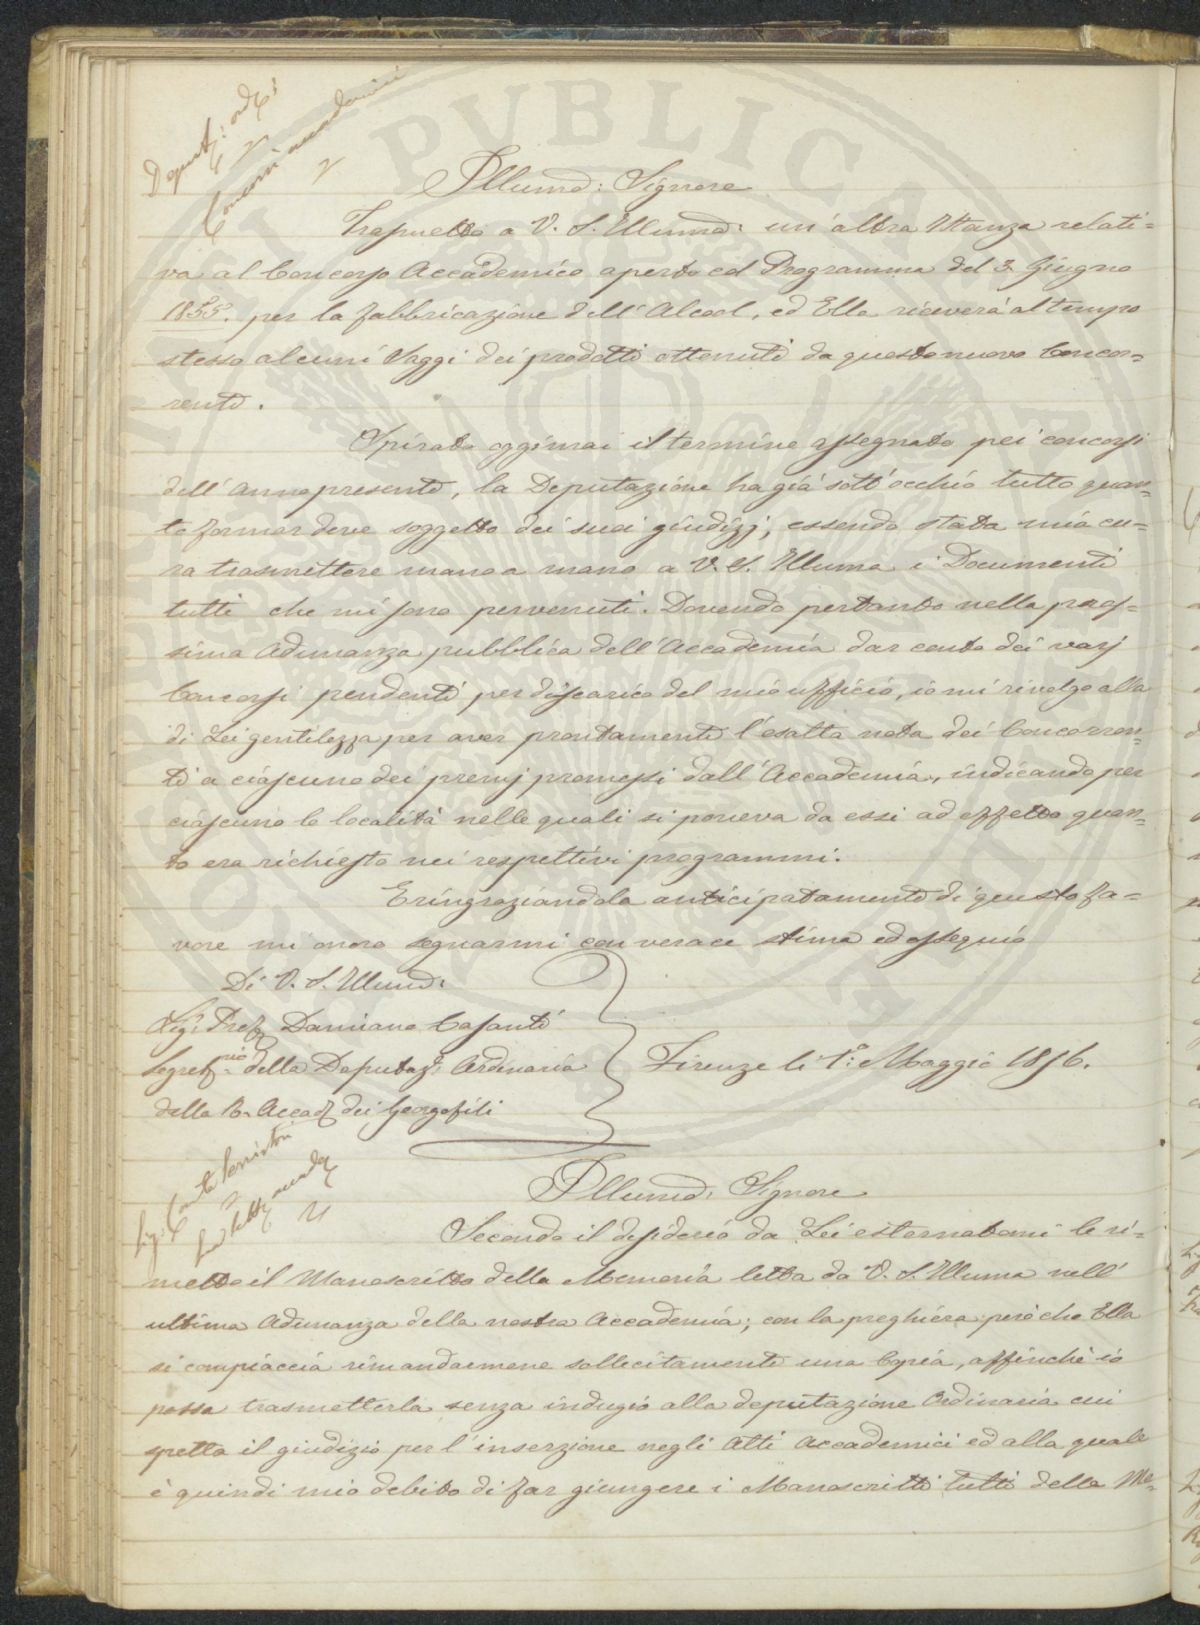 Deputaz: ord:
Concorsi accademici
Illumo: Signore
Trasmetto a V. S. Illuma: un' altra Istanza relati=
va al Concorso Accademico aperto col Programma del 3 Giugno
1855. per la fabbricazione dell' Alcool, ed Ella riceverà al tempo
stesso alcuni Saggi dei prodotti ottenuti da questo nuovo Concor=
rente.
Spirato oggimai il termine assegnato pei concorsi
dell' anno presente, la Deputazione ha già sott' occhio tutto quan=
to formar deve soggetto dei suoi giudizj; essendo stata mia cu=
ra trasmettere mano a mano a V. S. Illuma i Documenti
tutti che mi sono pervenuti. Dovendo pertanto nella pros=
sima Adunanza pubblica dell' Accademia dar conto dei varj
Concorsi pendenti per discarico del mio ufficio, io mi rivolgo alla
di Lei gentilezza per aver prontamente l' esatta nota dei Concorren=
ti a ciascuno dei premj promessi dall' Accademia, indicando per
ciascuno le località nelle quali si poneva da essi ad effetto quan=
to era richiesto nei respettivi programmi.
E ringraziandola anticipatamente di questo fa=
vore mi onoro segnarmi con verace stima ed ossequio
Di V. S. Illumo:
Sigr: Prof Damiano Casanti
Segretrio della Deputaze: Ordinaria
della R. Accad dei Georgofili
Firenze li 1o: Maggio 1856.
Sig: Conte
Illumo: Signore
Secondo il desiderio da Lei esternatomi le ri=
metto il Manoscritto della Memoria letta da V. S. Illuma nell'
ultima Adunanza della nostra Accademia; con la preghiera però che Ella
si compiaccia rimandarmene sollecitamente una Copia, affinchè io
possa trasmetterla senza indugio alla deputazione Ordinaria cui
spetta il giudizio per l' inserzione negli Atti Accademici ed alla quale
è quindi mio debito di far giungere i Manoscritti tutti delle Me=